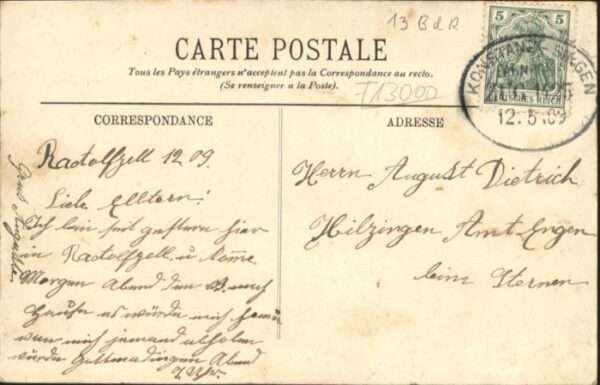 13 B d R
CARTE POSTALE
Tous les Pays étrangers n'acceptent pas la Correspondance au recto.
(Se renseigner à la Poste).
T13000
5 5
KONSTANZ - SINGEN
12.5.09
CORRESPONDANCE
ADRESSE
Radolfzell 12 09.
Liebe Elltern!
Ich bin seit gestern hier
in Radolfzell, u komme
Morgen Abend den 13. nach
Hause es würde mich
wen mich jemand abholen
würde Gottmadingen Abend
Herrn August Dietrich
Hilzingen Amt Engen
beim Sternen